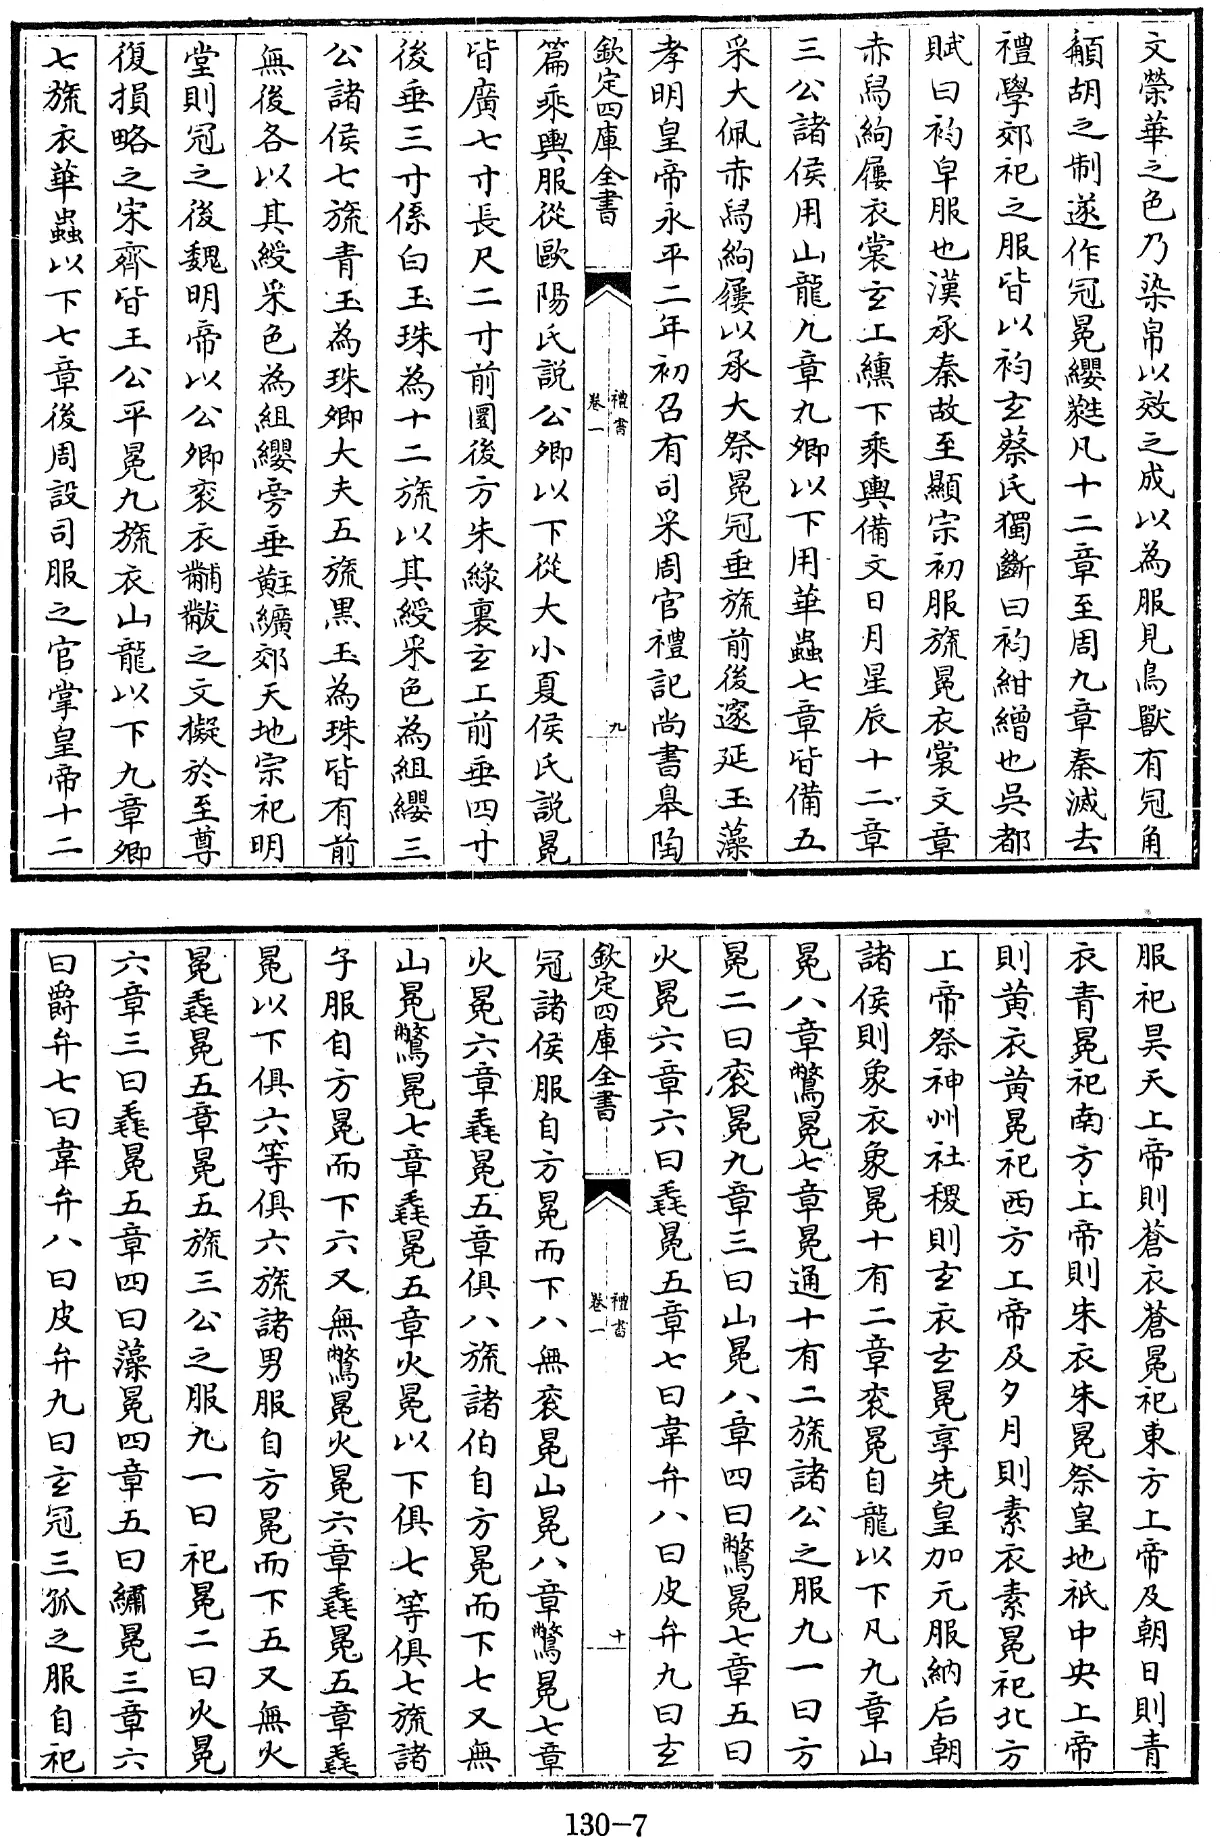 文榮華之色乃染帛以效之成以為服見鳥獸有冠角
髯胡之制遂作冠冕纓蕤凡十二章至周九章秦滅去
禮學郊祀之服皆以袀玄蔡氏獨斷曰袀紺繒也吳都
賦曰袀皁服也漢承秦故至顯宗初服旒冕衣裳文章
赤舄絇屨衣裳玄上纁下乘輿備文日月星辰十二章
三公諸侯用山龍九章九卿以下用華蟲七章皆備五
采大佩赤舄絇屨以承大祭冕冠垂旒前後邃延玉藻
孝明皇帝永平二年初召有司采周官禮記尚書臯陶
欽定四庫全書
禮書
卷一
九
篇乘輿服從歐陽氏說公卿以下從大小夏侯氏說冕
皆廣七寸長尺二寸前圜後方朱緑裏玄上前垂四寸
後垂三寸係白玉珠為十二旒以其綬采色為組纓三
公諸侯七旒青玉為珠卿大夫五旒黑玉為珠皆有前
無後各以其綬采色為組纓旁垂黈纊郊天地宗祀明
堂則冠之後魏明帝以公卿衮衣黼黻之文擬於至尊
復損略之宋齊皆王公平冕九旒衣山龍以下九章卿
七旒衣華蟲以下七章後周設司服之官掌皇帝十二
服祀昊天上帝則蒼衣蒼冕祀東方上帝及朝日則青
衣青冕祀南方上帝則朱衣朱冕祭皇地祇中央上帝
則黃衣黃冕祀西方上帝及夕月則素衣素冕祀北方
上帝祭神州社稷則玄衣玄冕享先皇加元服納后朝
諸侯則象衣象冕十有二章衮冕自龍以下凡九章山
冕八章鷩冕七章冕通十有二旒諸公之服九一曰方
冕二曰衮冕九章三曰山冕八章四曰鷩冕七章五曰
火冕六章六曰毳冕五章七曰韋弁八曰皮弁九曰玄
欽定四庫全書
禮書
卷一
十
冠諸侯服自方冕而下八無衮冕山冕八章鷩冕七章
火冕六章毳冕五章俱八旒諸伯自方冕而下七又無
山冕鷩冕七章毳冕五章火冕以下俱七等俱七旒諸
子服自方冕而下六又無鷩冕火冕六章毳冕五章毳
冕以下俱六等俱六旒諸男服自方冕而下五又無火
冕毳冕五章冕五旒三公之服九一曰祀冕二曰火冕
六章三曰毳冕五章四曰藻冕四章五曰繡冕三章六
曰爵弁七曰韋弁八曰皮弁九曰玄冠三孤之服自祀
130-7